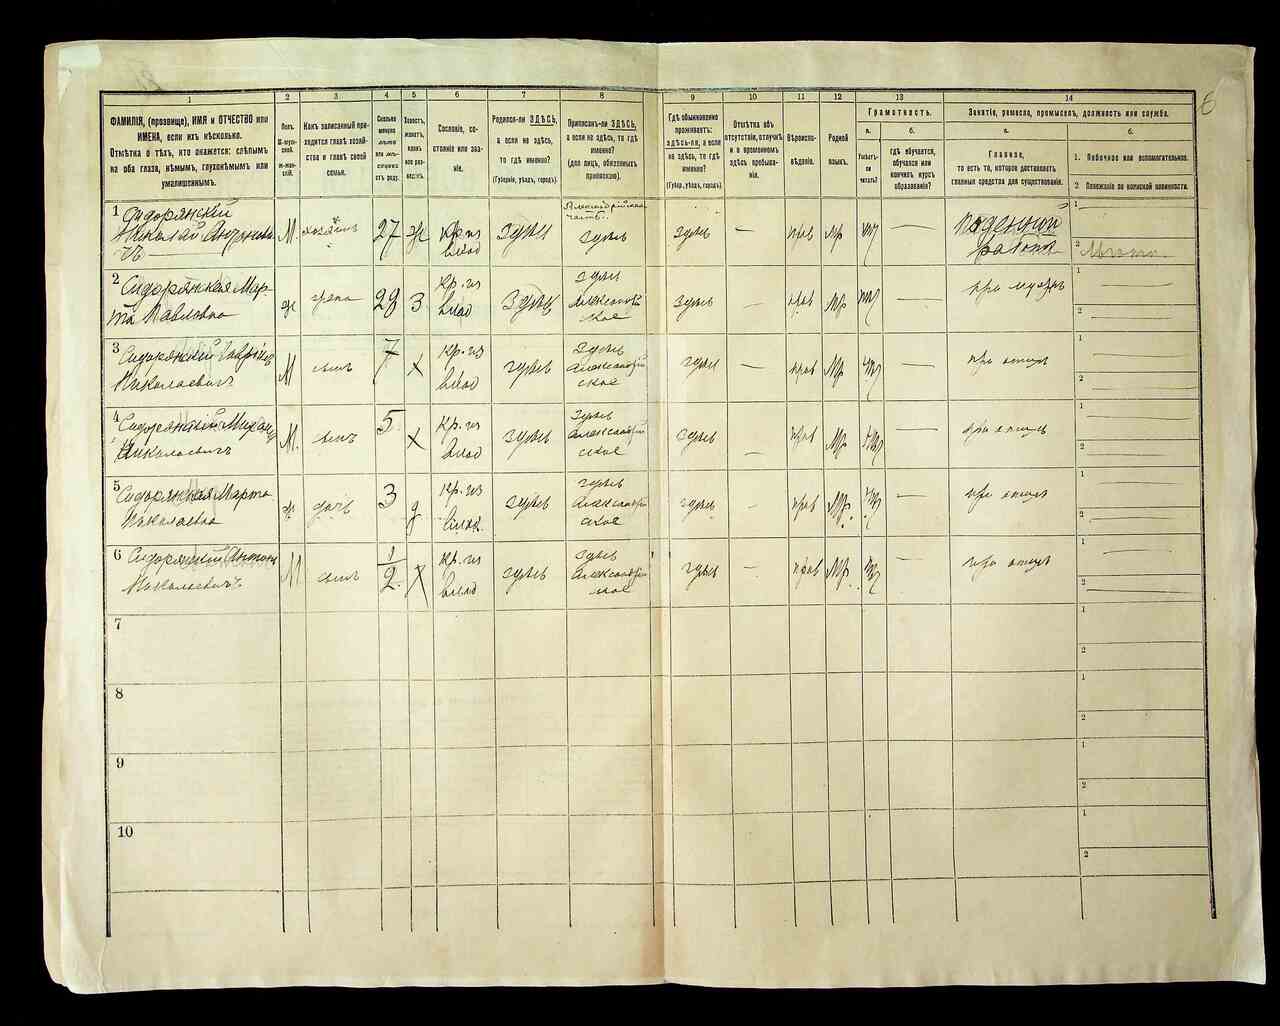 1
2
3
4
5
6
7
8
9
10
11
12
13
14
ФАМИЛІЯ, (прозвище), ИМЯ и ОТЧЕСТВО или
ИМЕНА, если ихъ нѣсколько.
Отмѣтка о тѣхъ, кто окажется: слѣпымъ
на оба глаза, нѣмымъ, глухонѣмымъ или
умалишеннымъ.
Полъ.
М-мужской.
Ж-женскій.
Какъ записанный при-
ходится главѣ хозяй-
ства и главѣ своей
семьи.
Сколько
минуло
лѣтъ
или мѣ-
сяцевъ
отъ роду.
Холостъ,
женатъ,
вдовъ
или раз-
веденъ.
Сословіе, со-
стояніе или зва-
ніе.
Родился-ли ЗДѢСЬ,
а если не здѣсь,
то гдѣ именно?
(Губернія, уѣздъ, городъ).
Приписанъ-ли ЗДѢСЬ,
а если не здѣсь, то гдѣ
именно?
(для лицъ, обязанныхъ
припискою).
Гдѣ обыкновенно
проживаетъ:
здѣсь-ли, а если
не здѣсь, то гдѣ
именно?
(Губер., уѣздъ, городъ).
Отмѣтка объ
отсутствіи, отлучкѣ
и о временномъ
здѣсь пребыва-
ніи.
Вѣроиспо-
вѣданіе.
Родной
языкъ.
Грамотность.
а.
Умѣетъ-
ли
читать?
б.
гдѣ обучается,
обучался или
кончилъ курсъ
образованія?
Занятіе, ремесло, промыселъ, должность или служба.
а.
Главное,
то есть то, которое доставляетъ
главныя средства для существованія.
б.
1. Побочное или вспомогательное.
2. Положеніе по воинской повинности.
1 Сидорянскій
Николай Антонови
чъ
М. хозяинъ 27 ж Кр. из
влад здѣсь
Александрійская
часть
здѣсь
здѣсь — прав Мр —
Поденной
работа
1
2
2 Сидорянская Мар-
та Павловна
ж жена 29 З Кр. из
влад здѣсь
здѣсь
Александрій
ское
здѣсь — прав Мр — при мужѣ
1
2
3 Сидорянскій
Николаевичъ
М сынъ 7 х Кр. из
влад здѣсь
здѣсь
Александрій
ское
здѣсь — прав Мр — при отцѣ
1
2
4 Сидорянскій
Николаевичъ
М. сынъ 5 х Кр. из
влад здѣсь
здѣсь
Александрій
ское
здѣсь — прав Мр. — при отцѣ
1
2
5 Сидорянская Марта
Николаевна
ж дочь 3 д Кр. из
влад. здѣсь
здѣсь
Александрій
ское
здѣсь — прав Мр. — при отцѣ
1
2
6 Сидорянскій Антонъ
Николаевичъ
М сынъ 1/2 х Кр. из
влад здѣсь
здѣсь
Александрій
ское
здѣсь — прав Мр. — при отцѣ
1
2
7
1
2
8
1
2
9
1
2
10
1
2